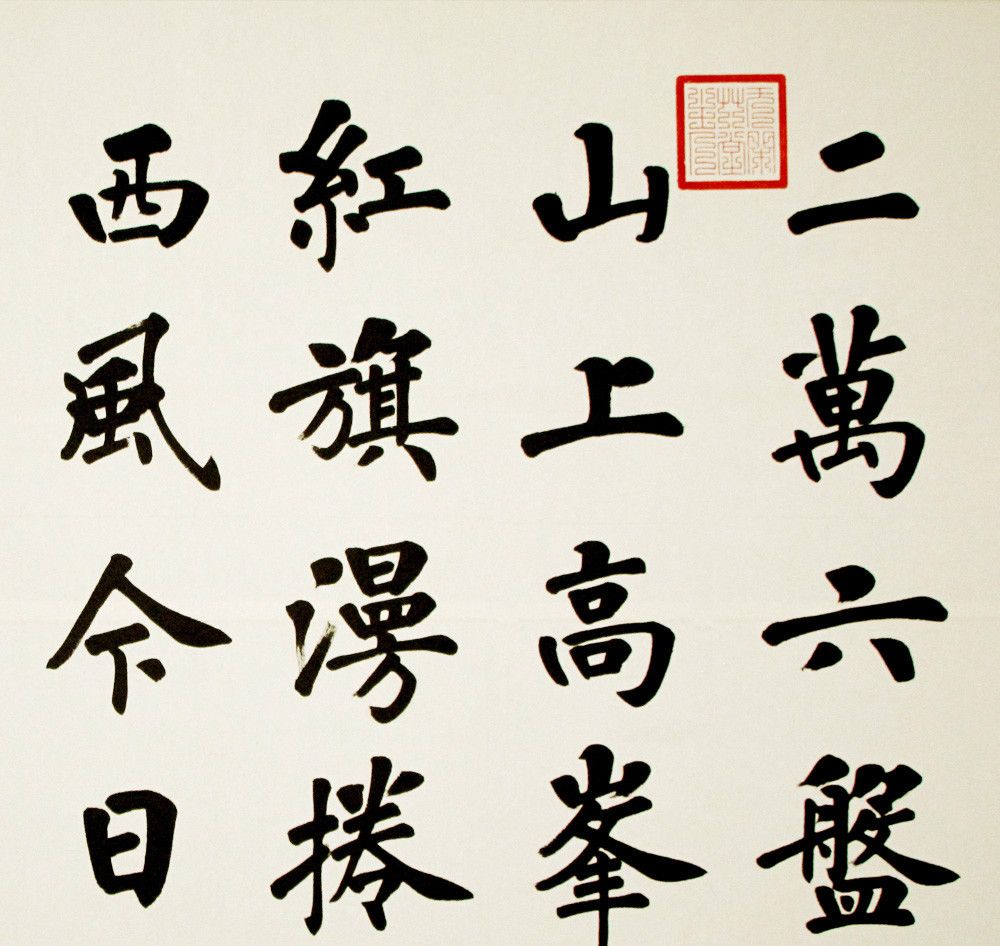 二萬六盤
山上高峯
紅旗漫捲
西風今日